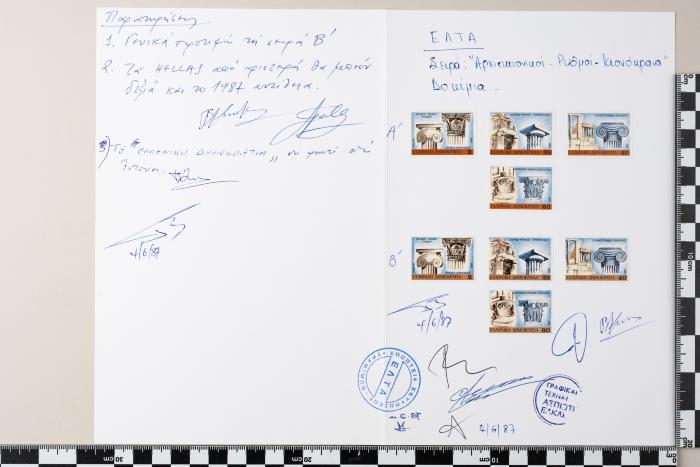 Παρατηρήσεις
1. Γενικά προτιμώ τη σειρά Β'
2. Τα HELLAS από αριστερά θα μπουν
δεξιά και το 1987 αντίθετα.
3) Το "ΕΛΛΗΝΙΚΗ ΔΗΜΟΚΡΑΤΙΑ" να
4/6/87
ΕΛΤΑ
Σειρά: "Αρχιτεκτονικοί - Ρυθμοί - Κιονόκρανα"
Δοκίμια...
Α'
ΕΛΛΗΝΙΚΗ ΔΗΜΟΚΡΑΤΙΑ 2
ΕΛΛΗΝΙΚΗ ΔΗΜΟΚΡΑΤΙΑ 26
ΕΛΛΗΝΙΚΗ ΔΗΜΟΚΡΑΤΙΑ 40
ΕΛΛΗΝΙΚΗ ΔΗΜΟΚΡΑΤΙΑ 60
Β'
ΕΛΛΗΝΙΚΗ ΔΗΜΟΚΡΑΤΙΑ 2
ΕΛΛΗΝΙΚΗ ΔΗΜΟΚΡΑΤΙΑ 26
ΕΛΛΗΝΙΚΗ ΔΗΜΟΚΡΑΤΙΑ 40
ΕΛΛΗΝΙΚΗ ΔΗΜΟΚΡΑΤΙΑ 60
4/6/87
ΕΠΟΠΤΕΙΑ ΕΚΤΥΠΩΣΕΩΣ ΓΡΑΜ/ΜΩΝ
ΕΛΤΑ
ΓΡΑΦΙΚΑΙ
ΤΕΧΝΑΙ
ΑΣΠΙΩΤΗ
ΕΛΚΑ
4/6/87
30 cm
20 cm
10 cm
cm
10 cm
cm